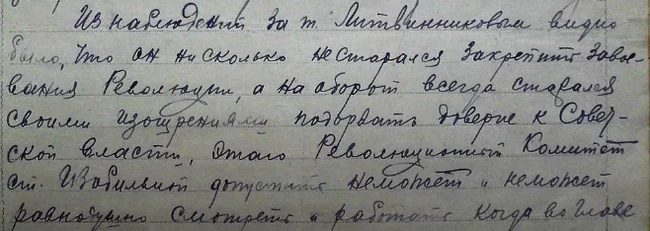 Из наблюдений за т. Литвинниковым видно
было, что он нисколько не старался закрепить завое-
вания Революции, а на оборот всегда старался
своими изощрениями подорвать доверие к Совет-
ской власти, этого Революционный Комитет
ст. Изобильной допустить неможет и неможет
равнодушно смотреть и работать когда во главе